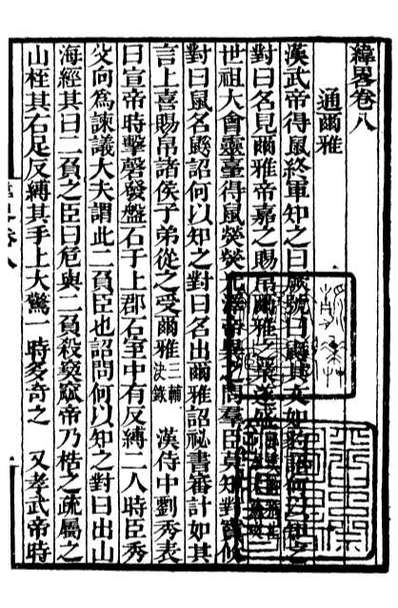 緯畧卷八
通爾雅
漢武帝得鼠終軍知之曰厥號曰其文如豹詔何以知之
對曰名見爾雅帝嘉之賜帛爾雅之業遂盛
世祖大會靈臺得鼠熒熒光澤帝異之問羣臣莫知對竇攸
對曰鼠名鼮詔何以知之對曰名出爾雅詔祕書審計如其
言上喜賜帛諸侯子弟從之受爾雅三輔決錄 漢侍中劉秀表
曰宣帝時擊磬發盤石于上郡石室中有反縛二人時臣秀
父向為諫議大夫謂此二負臣也詔問何以知之對曰出山
海經其曰二負之臣曰危與二負殺窫窳帝乃梏之疏屬之
山桎其右足反縛其手上大驚一時多奇之 又孝武帝時